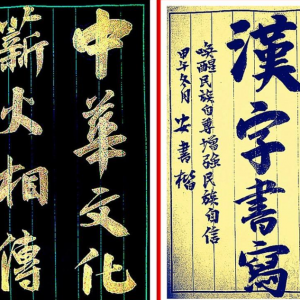 中華文化
薪火相傳
漢字書寫
喚醒民族自尊增強民族自信
甲午冬月 安書楷